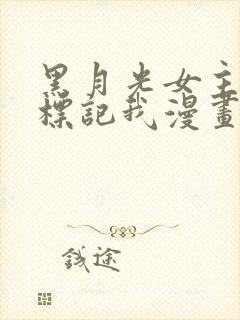 黑月光女主
標記我漫畫
錢途